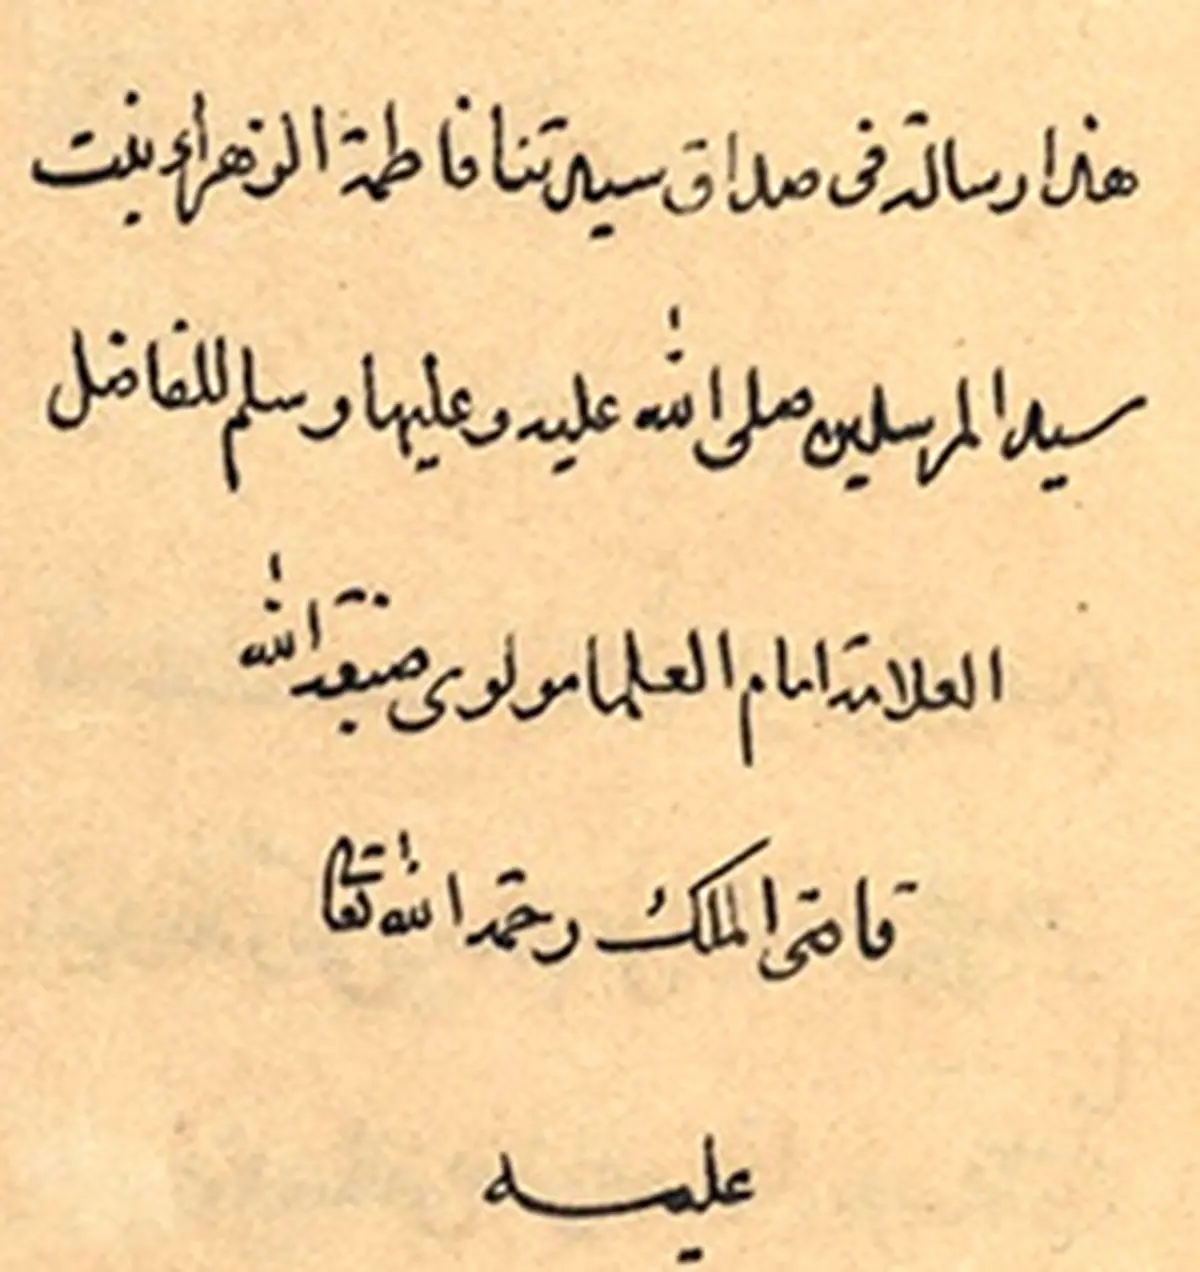 هذا رسالة فى صداق سيدتنا فاطمة الزهراء بنت
سيد المرسلين صلى الله عليه وعليها وسلم للفاضل
العلامة امام العلما مولوى صبغة الله
قاضى الملك رحمة الله تعالى
عليه